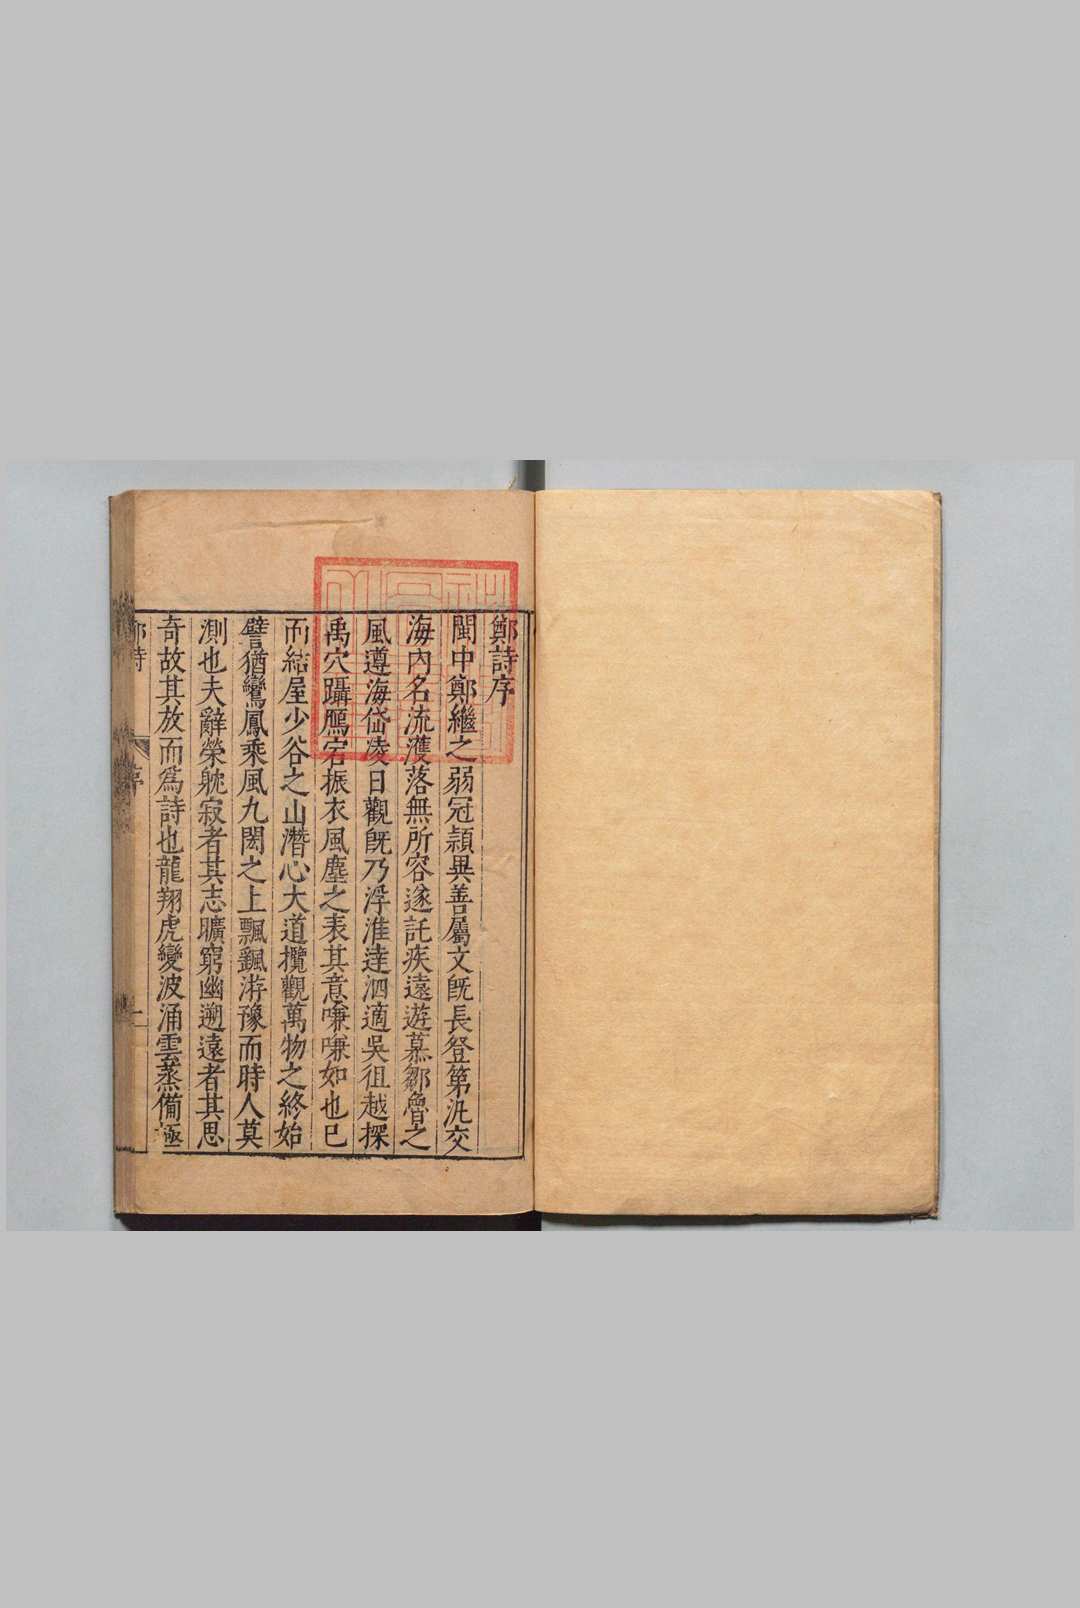 鄭詩序
閩中鄭繼之弱冠穎異善屬文旣長登第汎交
海內名流濩落無所容遂託疾遠遊慕鄒魯之
風遵海岱凌日觀旣乃浮淮達泗適吳徂越探
禹穴躡鴈宕振衣風塵之表其意嗛嗛如也已
而結屋少谷之山潛心大道攬觀萬物之終始
譬猶鸞鳳乘風九閡之上飄颻游豫而時人莫
測也夫辭榮躭寂者其志曠窮幽遡遠者其思
奇故其放而爲詩也龍翔虎變波涌雲蒸備極
鄭詩
序
一